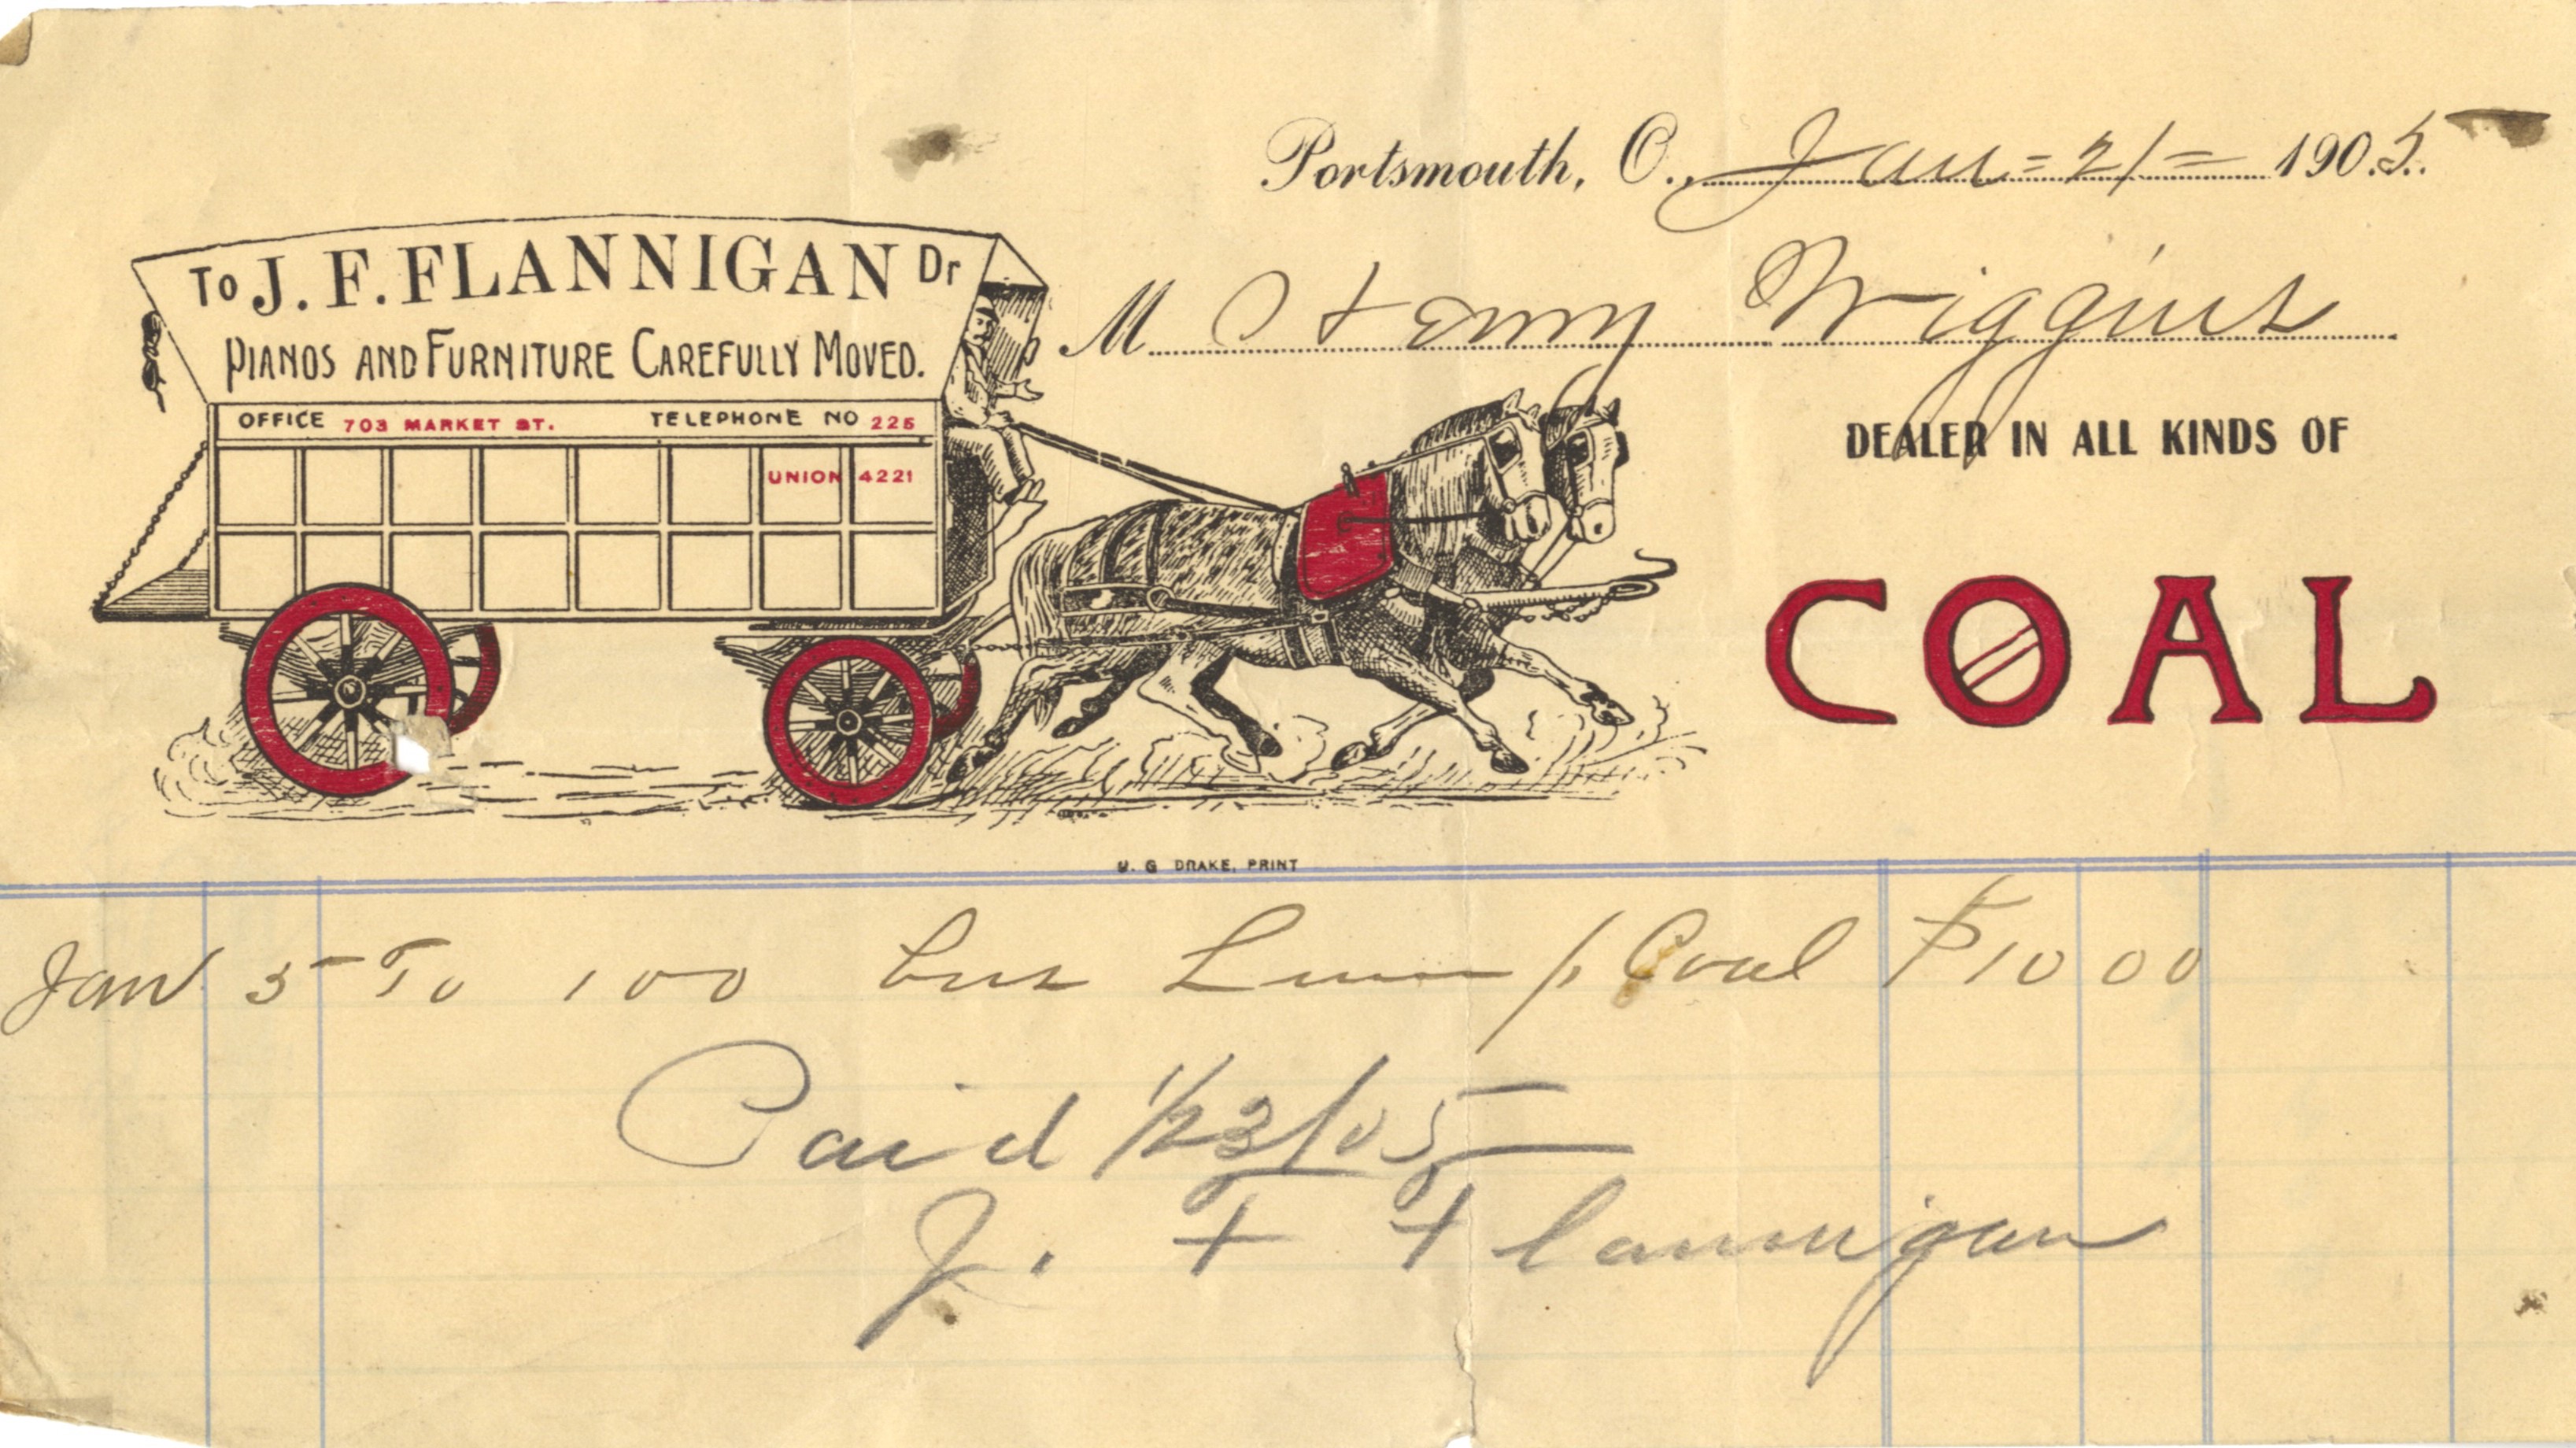 Portsmouth, O., Jan=21= 1905.
To J. F. FLANNIGAN Dr
PIANOS AND FURNITURE CAREFULLY MOVED.
M Henry Wiggins
OFFICE 703 MARKET ST. TELEPHONE NO 225
UNION 4221
DEALER IN ALL KINDS OF
COAL
U. G DRAKE, PRINT
Jan 5 To 100 bus Lump Coal $10 00
Paid 1/23/05
J. F Flannigan